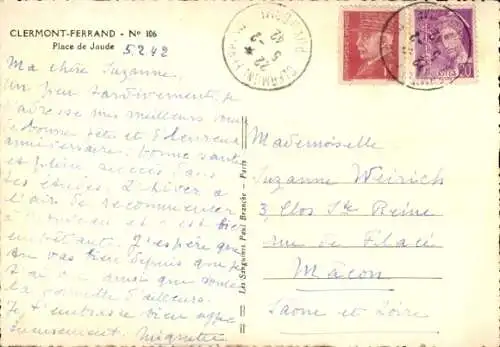 CLERMONT-FERRAND - N° 106
Place de Jaude
5 2 42
Ma chère Suzanne.
Un peu tardivement, je
t'adresse mes meilleurs vœux
de bonne fête et d'heureux
anniversaire. bonne santé
et plein succès dans
tes études. L'hiver a
l'air de recommencer
à nouveau et c'est bien
embêtant. J'espère que
tu vas bien depuis que je
t'ai vu ainsi que toute
la famille d'ailleurs.
Je t'embrasse bien affec
tueusement. Mignette
Les Sanguines Paul Branche - Paris
CLERMONT-FD
5 -2
42
PUY-DE-DOME
Mademoiselle
Suzanne Weirich
3, Clos Ste Reine
rue de Flacé
Mâcon
Saône et Loire